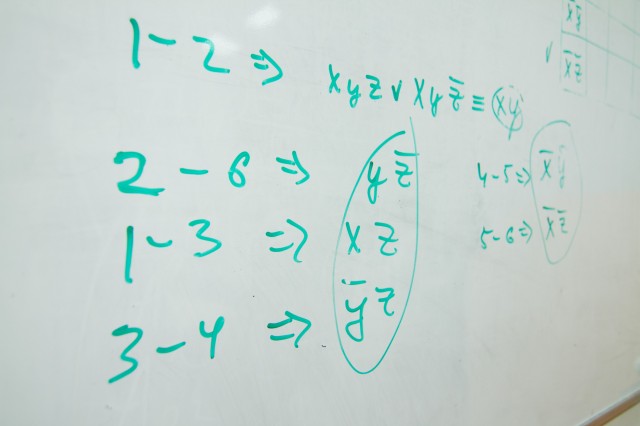 1-2 ⇒ xyz v xyz̅ ≡ xy
2-6 ⇒ yz̅
1-3 ⇒ xz
3-4 ⇒ y̅z
4-5 ⇒ x̅y̅
5-6 ⇒ x̅z̅
v x̅z̅